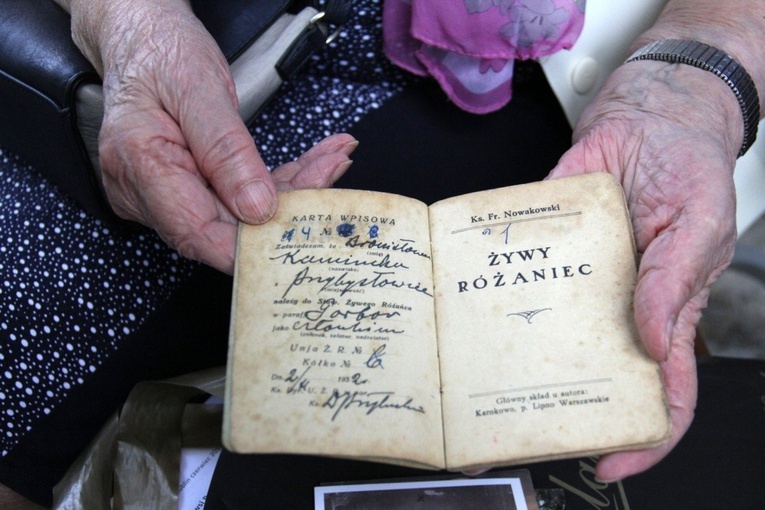 KARTA WPISOWA
4 № 8
Zaświadczam, że Bronisława
(imię)
Kamińska
(nazwisko)
z Przybysławice
(miejscowość)
należy do Stow. Żywego Różańca
w parafji Garbów
jako członkini
(członek, zelator, nadzelator)
Unja Ż. R. №
Kółko № 6
Dn. 2/ 1932 r.
Ks. Dyr. U. Ż. R.
Ks.
Ks. Fr. Nowakowski
ŻYWY
RÓŻANIEC
Główny skład u autora:
Karnkowo, p. Lipno Warszawskie